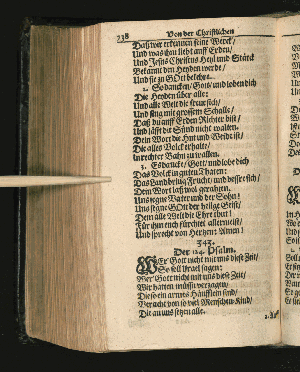 238 Von der Christlichen
Daß wir erkennen seine Werck/
Und was ihm liebt auff Erden/
Und Jesus Christus Heyl und Stärck
Bekannt den Heyden werde/
Und sie zu Gott bekehre.
2. So dancken/ Gott/ und loben dich
Die Heyden über alle:
Und alle Welt die freue sich/
Und sing mit grossem Schalle/
Daß du auff Erden Richter bist/
Und läßt die Sünd nicht walten.
Dein Wort die Hut und Weide ist/
Die alles Volck erhalte/
In rechter Bahn zu wallen.
3. Es dancke/ Gott/ und lobe dich
Das Volck in guten Thaten:
Das Land bring Frucht und bessre sich/
Dein Wort laß wol gerahten.
Uns segne Vater und der Sohn!
Uns segne GOtt der heilge Geist/
Dem alle Welt die Ehre thut!
Für ihm euch fürchtet allermeist/
Und sprecht von Hertzen: Amen!
343.
Der 124. Psalm.
WEr Gott nicht mit uns diese Zeit/
So soll Israel sagen:
Wer Gott nicht mit uns diese Zeit/
Wir hätten müssn verzagen/
Die so ein armes Häufflein sind/
Veracht von so viel Menschen-Kind/
Die an uns setzen alle.